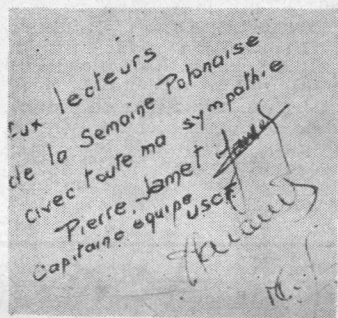 Aux lecteurs
de la Semaine Polonaise
avec toute ma sympathie
Pierre Jamet
Capitaine équipe USCF